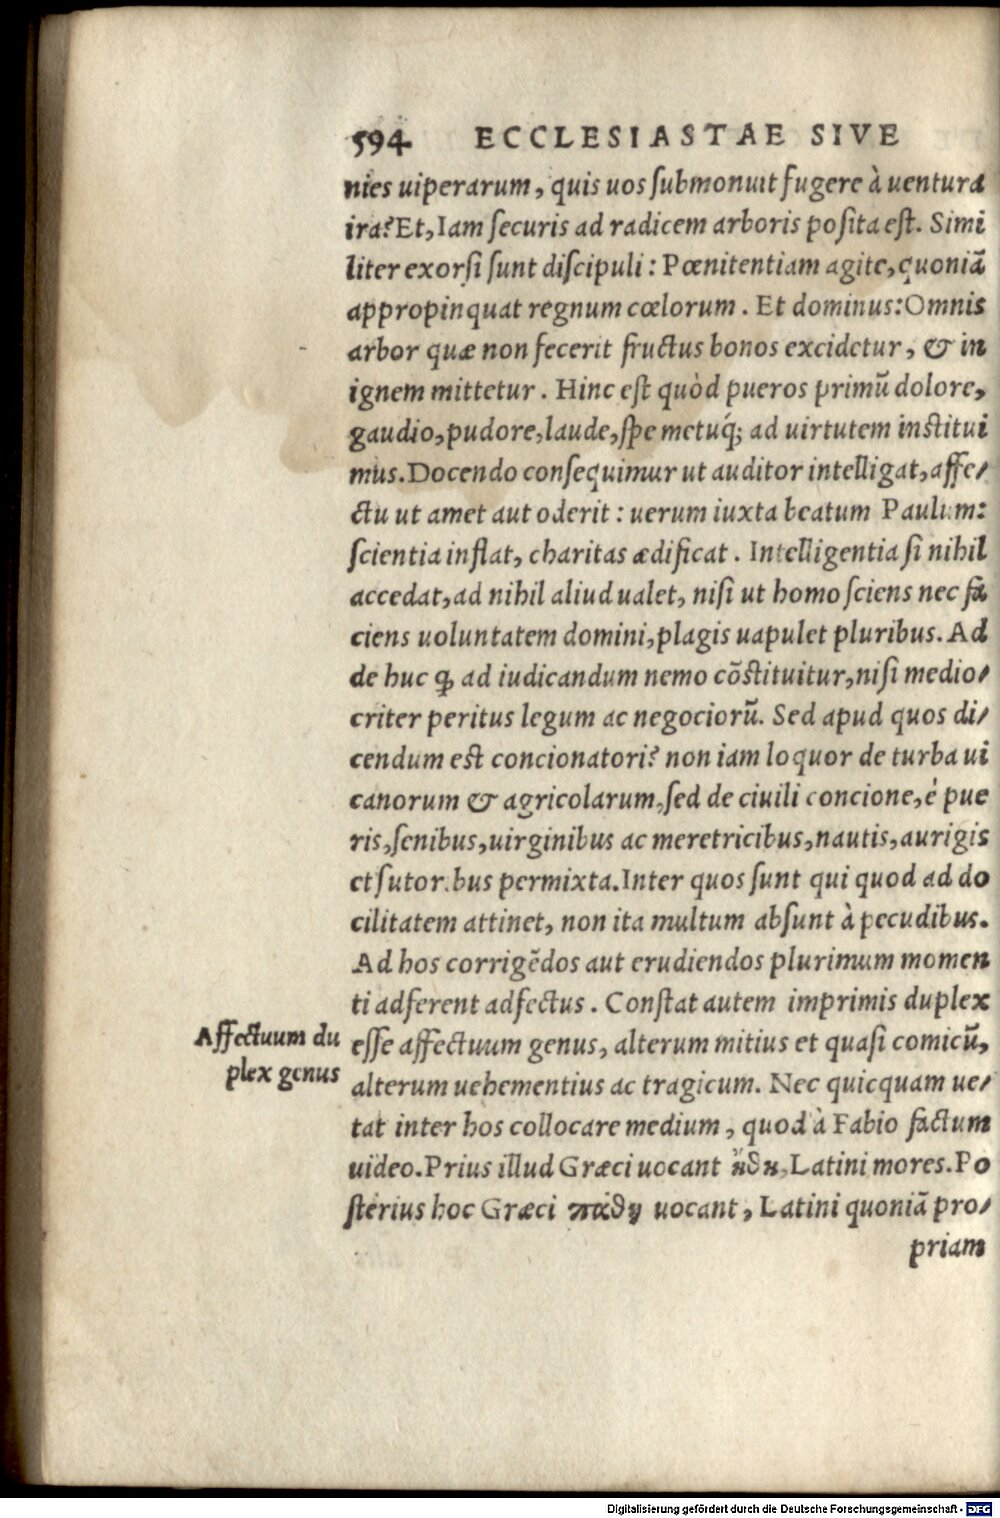 594 ECCLESIASTAE SIVE
nies uiperarum, quis uos ſubmonuit fugere à uentura
ira? Et, Iam ſecuris ad radicem arboris poſita eſt. Simi
liter exorſi ſunt diſcipuli: Pœnitentiam agite, quoniã
appropinquat regnum cœlorum. Et dominus: Omnis
arbor quæ non fecerit fructus bonos excidetur, & in
ignem mittetur. Hinc eſt quòd pueros primũ dolore,
gaudio, pudore, laude, ſpe metuq́; ad uirtutem inſtitui
mus. Docendo conſequimur ut auditor intelligat, affe/
ctu ut amet aut oderit: uerum iuxta beatum Paulum:
ſcientia inflat, charitas ædificat. Intelligentia ſi nihil
accedat, ad nihil aliud ualet, niſi ut homo ſciens nec fa
ciens uoluntatem domini, plagis uapulet pluribus. Ad
de huc ꝙ ad iudicandum nemo cõſtituitur, niſi medio/
criter peritus legum ac negociorũ. Sed apud quos di/
cendum eſt concionatori? non iam loquor de turba ui
canorum & agricolarum, ſed de ciuili concione, è pue
ris, ſenibus, uirginibus ac meretricibus, nautis, aurigis
et ſutoribus permixta. Inter quos ſunt qui quod ad do
cilitatem attinet, non ita multum abſunt à pecudibus.
Ad hos corrigẽdos aut erudiendos plurimum momen
ti adferent adfectus. Conſtat autem imprimis duplex
Affectuum du
plex genus
eſſe affectuum genus, alterum mitius et quaſi comicũ,
alterum uehementius ac tragicum. Nec quicquam ue/
tat inter hos collocare medium, quod à Fabio factum
uideo. Prius illud Græci uocant ἤθη, Latini mores. Po
ſterius hoc Græci πάθη uocant, Latini quoniã pro/
priam
Digitalisierung gefördert durch die Deutsche Forschungsgemeinschaft - DFG